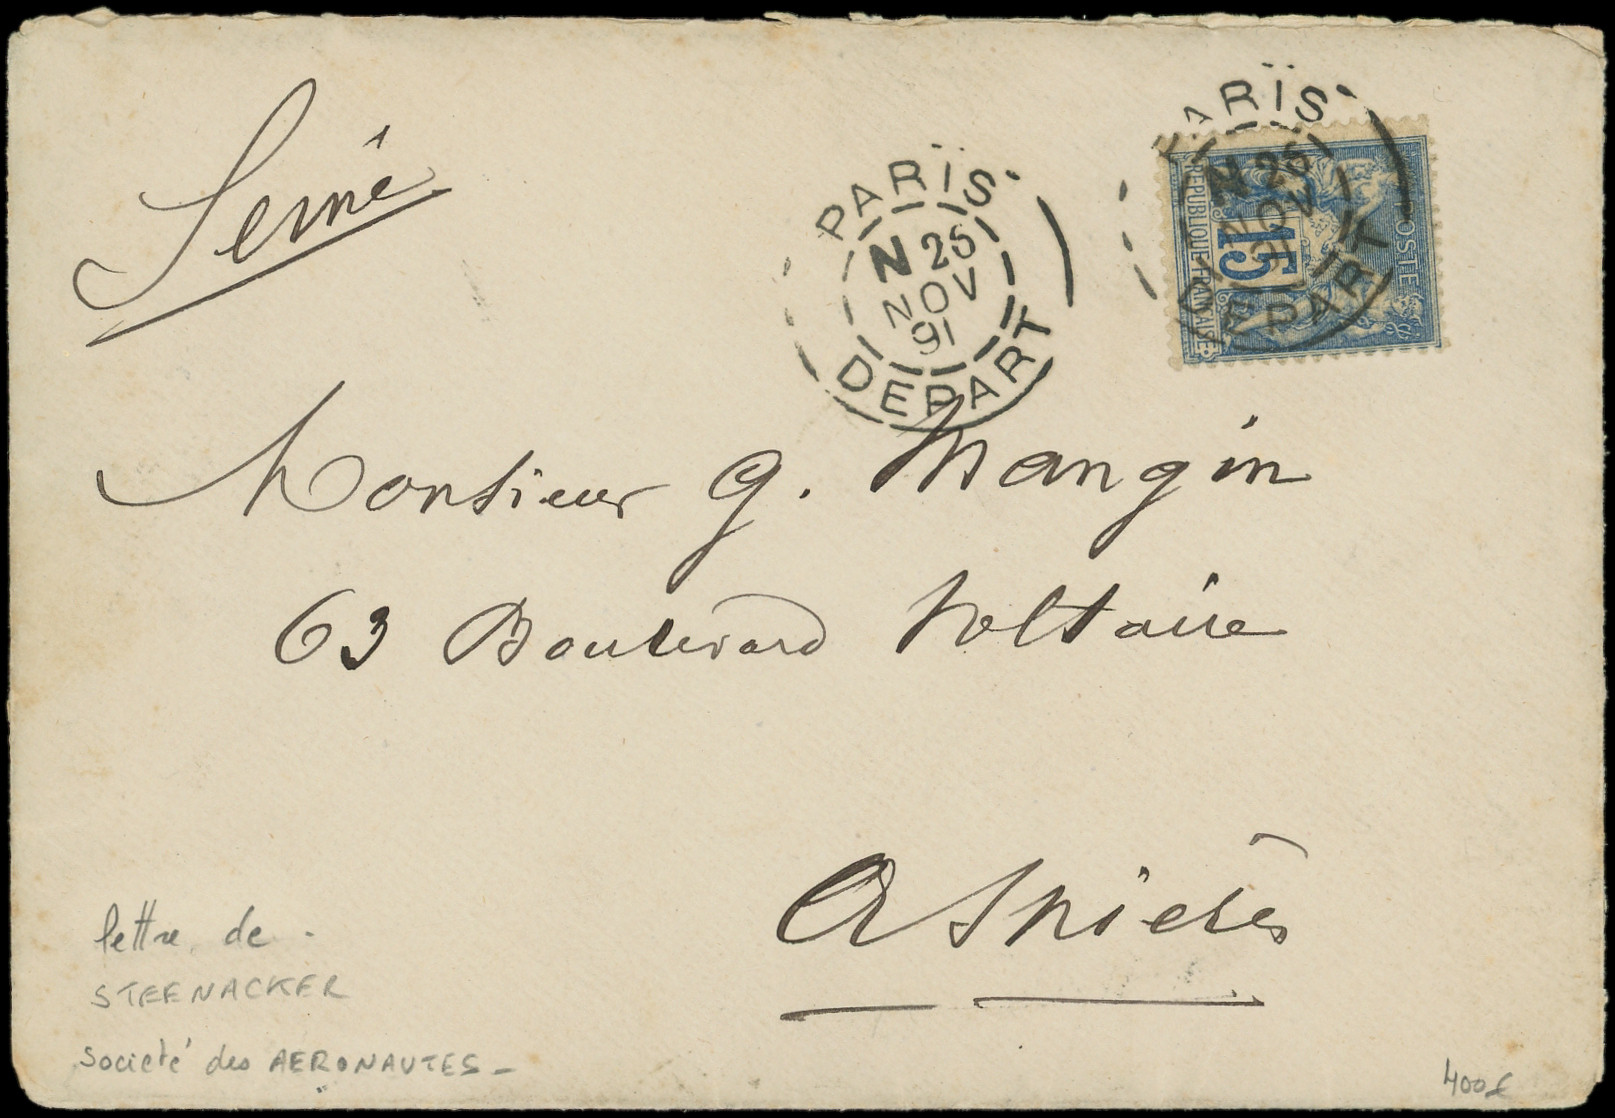 Seine
PARIS
N 25
NOV
91
DEPART
PARIS
N 25
NOV
DEPART
REPUBLIQUE FRANÇAISE
15
POSTE
Monsieur G. Mangin
63 Boulevard Voltaire
Asnières
lettre de
STEENACKER
Société des AERONAUTES -
400£